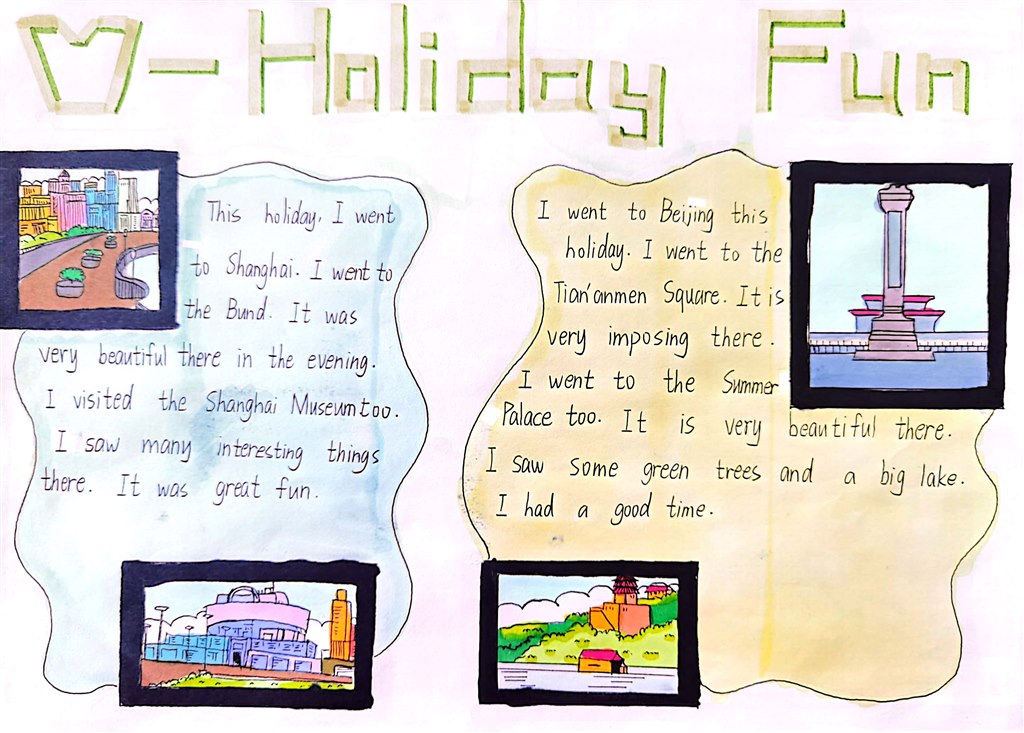 M-Holiday Fun
This holiday, I went
to Shanghai. I went to
the Bund. It was
very beautiful there in the evening.
I visited the Shanghai Museum too.
I saw many interesting things
there. It was great fun.
I went to Beijing this
holiday. I went to the
Tian'anmen Square. It is
very imposing there.
I went to the Summer
Palace too. It is very beautiful there.
I saw some green trees and a big lake.
I had a good time.